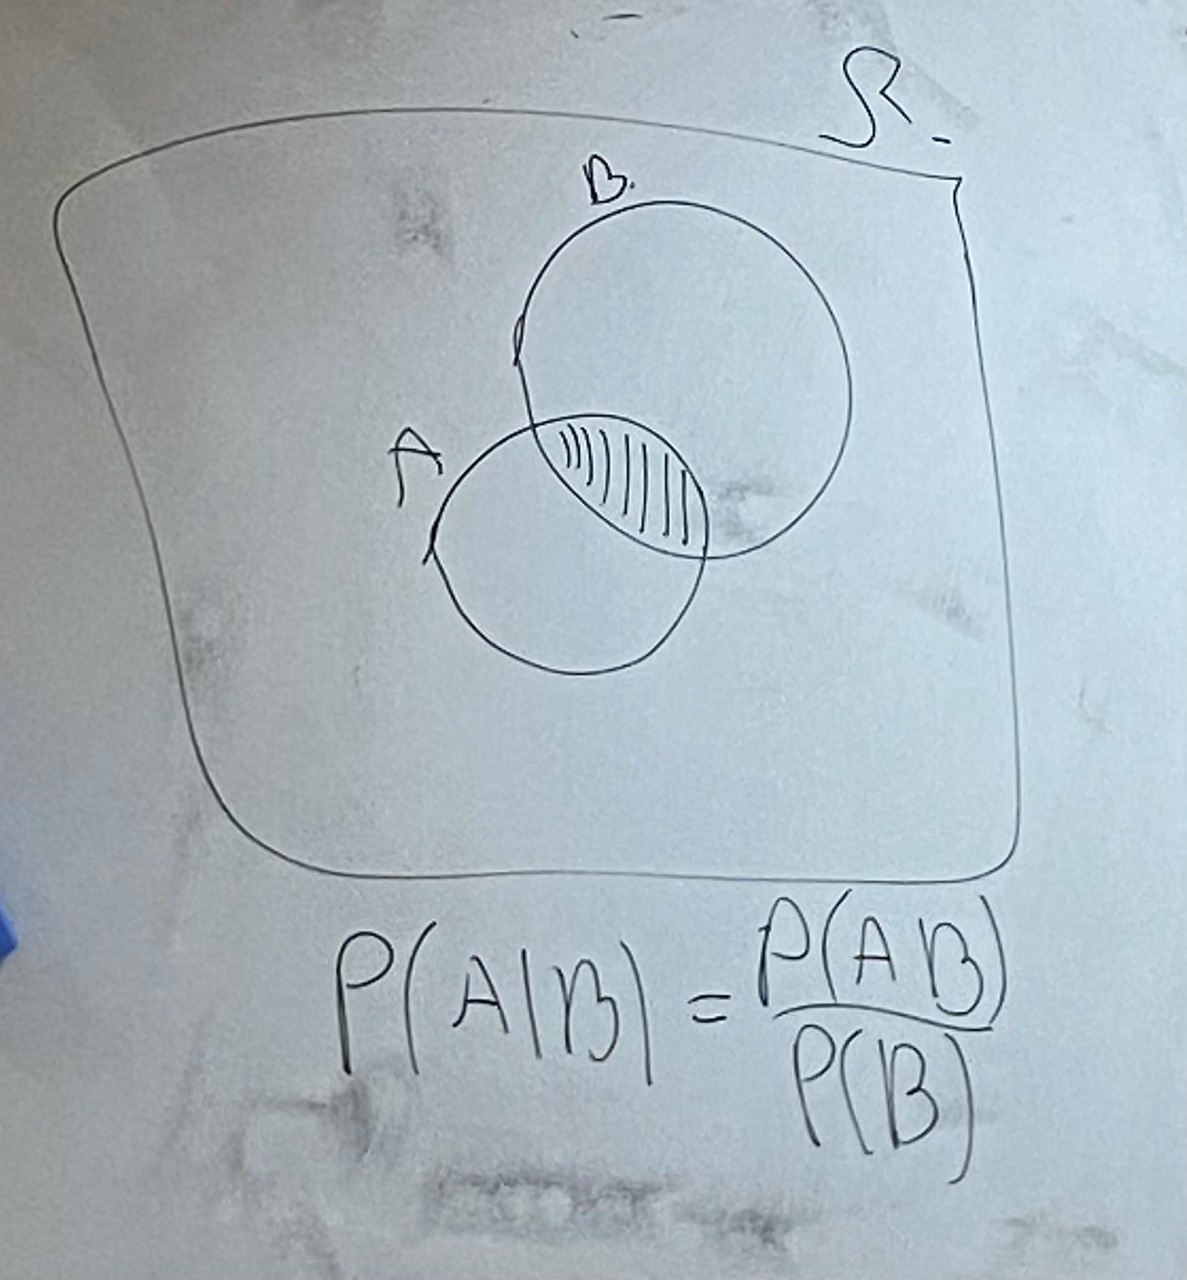 Ω
B
A
P(A|B) = P(AB)/P(B)